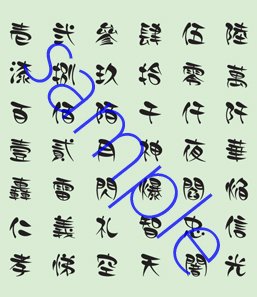 壱弐參肆伍陸
漆捌玖拾零萬
百佰陌千仟阡
壹貳月神夜華
轟雷閃爆閻焔
仁義礼智忠信
孝悌空天闇光
sample